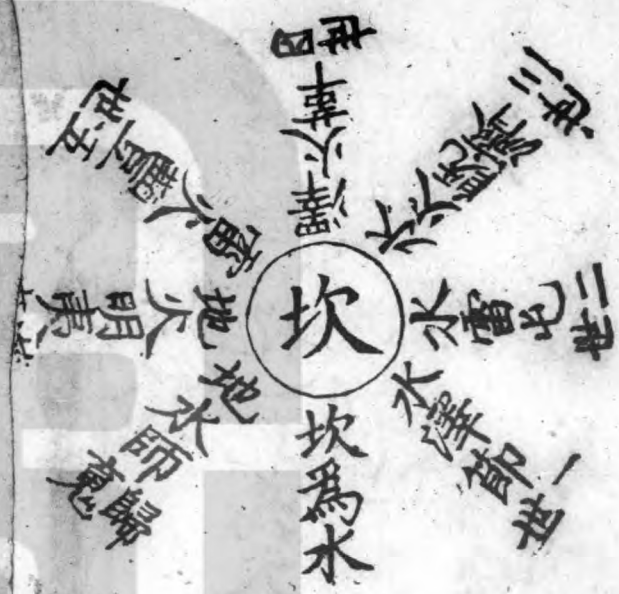 坎
坎爲水
水澤節 一世
水雷屯 二世
水火既濟 三世
澤火革 四世
雷火豐 五世
地火明夷
地水師 歸魂